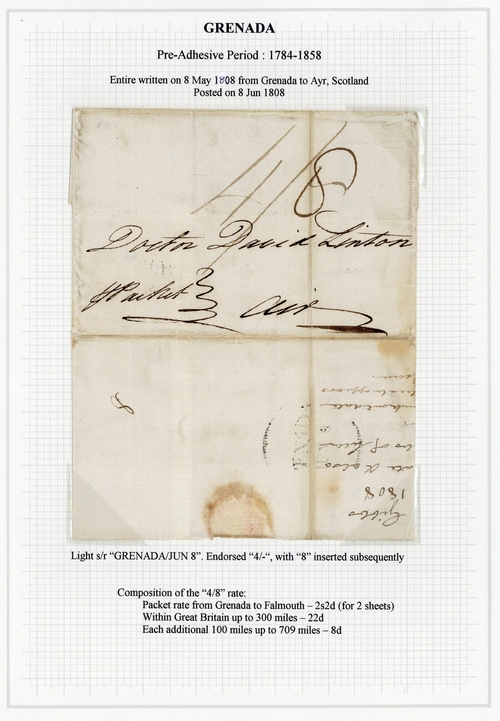 GRENADA
Pre-Adhesive Period : 1784-1858
Entire written on 8 May 1808 from Grenada to Ayr, Scotland
Posted on 8 Jun 1808
4/8
Doctor David Linton
Packet
Air
1808
Light s/r “GRENADA/JUN 8”. Endorsed “4/-“, with “8” inserted subsequently
Composition of the “4/8” rate:
Packet rate from Grenada to Falmouth – 2s2d (for 2 sheets)
Within Great Britain up to 300 miles – 22d
Each additional 100 miles up to 709 miles – 8d